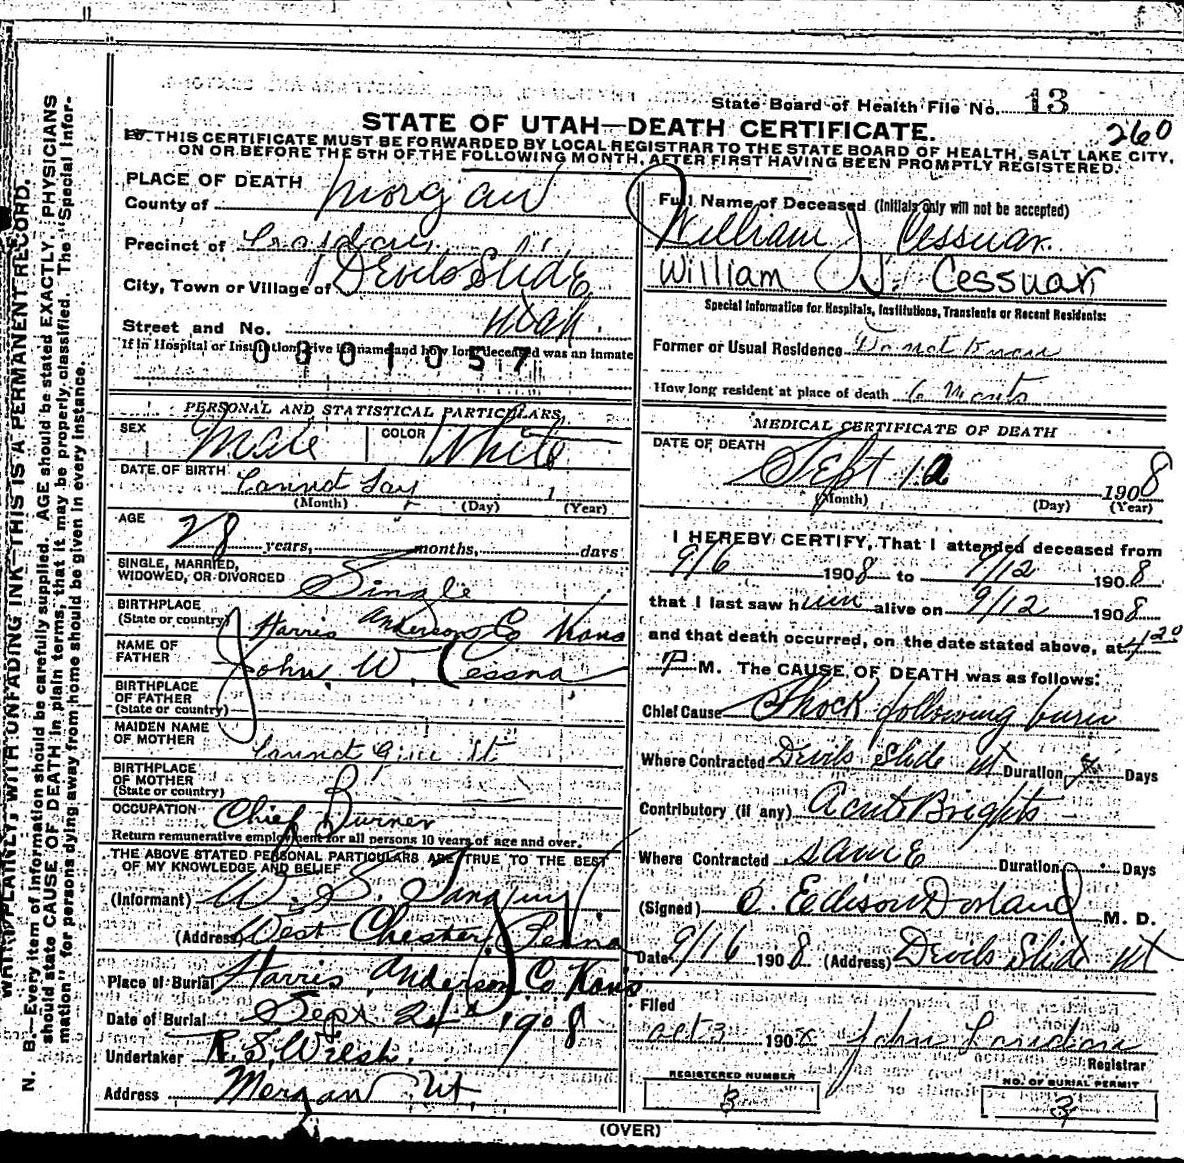 State Board of Health File No. 13
260
STATE OF UTAH—DEATH CERTIFICATE.
THIS CERTIFICATE MUST BE FORWARDED BY LOCAL REGISTRAR TO THE STATE BOARD OF HEALTH, SALT LAKE CITY,
ON OR BEFORE THE 5TH OF THE FOLLOWING MONTH, AFTER FIRST HAVING BEEN PROMPTLY REGISTERED.
WRITE PLAINLY, WITH UNFADING INK—THIS IS A PERMANENT RECORD.
N. B.—Every item of information should be carefully supplied. AGE should be stated EXACTLY. PHYSICIANS
should state CAUSE OF DEATH in plain terms, that it may be properly classified. The "Special Infor-
mation" for persons dying away from home should be given in every instance.
PLACE OF DEATH
County of Morgan
Precinct of
City, Town or Village of Devils Slide
Utah.
Street and No.
If in Hospital or Institution, give its name and how long deceased was an inmate
0301057
PERSONAL AND STATISTICAL PARTICULARS.
SEX Male COLOR White
DATE OF BIRTH Cannot Say 1
(Month) (Day) (Year)
AGE 28 years, months, days
SINGLE, MARRIED,
WIDOWED, OR DIVORCED Single
BIRTHPLACE
(State or country) Harris Anderson Co Kans
NAME OF
FATHER John W. Cessna
BIRTHPLACE
OF FATHER
(State or country)
MAIDEN NAME
OF MOTHER Cannot give it
BIRTHPLACE
OF MOTHER
(State or country)
OCCUPATION Chief Burner
Return remunerative employment for all persons 10 years of age and over.
THE ABOVE STATED PERSONAL PARTICULARS ARE TRUE TO THE BEST
OF MY KNOWLEDGE AND BELIEF
(Informant) W. S.
(Address) West Chester Penna
Place of Burial Harris Anderson Co Kans
Date of Burial Sept 24 1908
Undertaker R. S. Welsh.
Address Morgan Ut.
Full Name of Deceased (Initials only will not be accepted)
William J Cessuar.
William J. Cessuar
Special Information for Hospitals, Institutions, Transients or Recent Residents:
Former or Usual Residence Do not Know
How long resident at place of death 6 Months
MEDICAL CERTIFICATE OF DEATH
DATE OF DEATH
Sept 12 1908
(Month) (Day) (Year)
I HEREBY CERTIFY, That I attended deceased from
9/6 1908 to 9/12 1908
that I last saw him alive on 9/12 1908
and that death occurred, on the date stated above, at 4 20
P M. The CAUSE OF DEATH was as follows:
Chief Cause Shock following burn
Where Contracted Devils Slide Ut Duration Days
Contributory (if any) Acute Brights
Where Contracted same Duration Days
(Signed) C. Edison Dorland M. D.
Date 9/16 1908 (Address) Devils Slide Ut
Filed
Oct 3 1908 John
Registrar
REGISTERED NUMBER
3
NO. OF BURIAL PERMIT
3
(OVER)